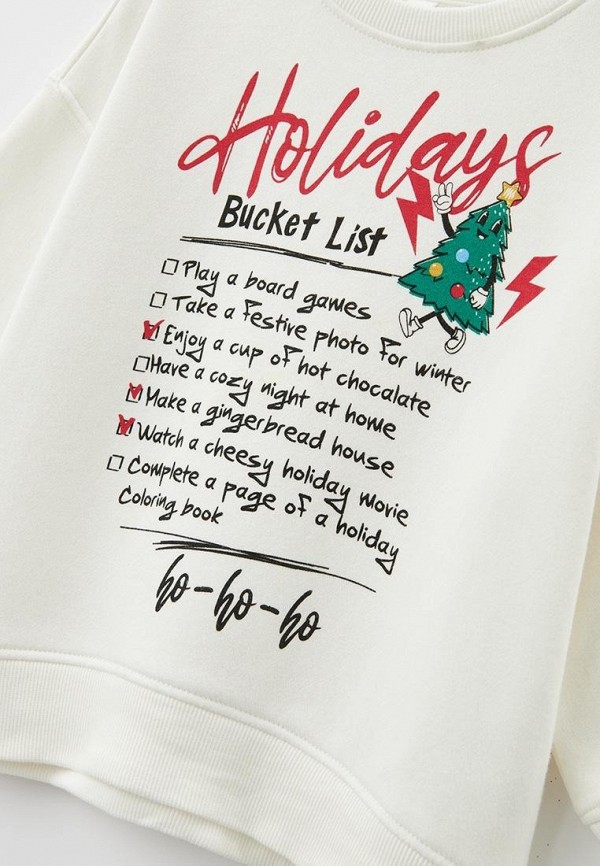 Holidays
Bucket List
Play a board games
Take a festive photo for winter
Enjoy a cup of hot chocalate
Have a cozy night at home
Make a gingerbread house
Watch a cheesy holiday movie
Complete a page of a holiday
Coloring book
ho-ho-ho